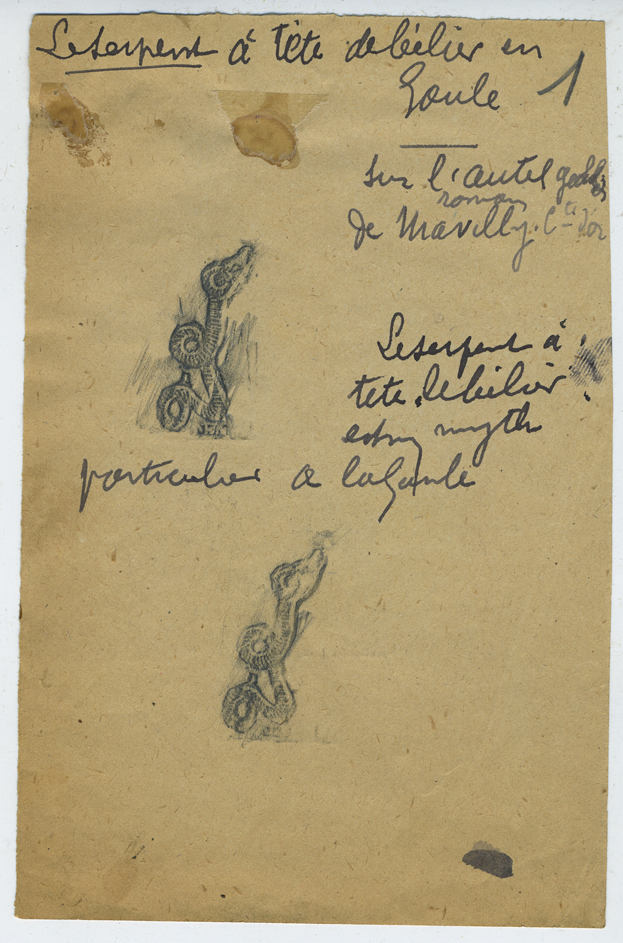 Le serpent à tête de bélier en
Gaule
1
sur l'autel
romain
de Mavilly. C-te d'or
Le serpent à
tete de bélier
est un myth
particulier a la Gaule